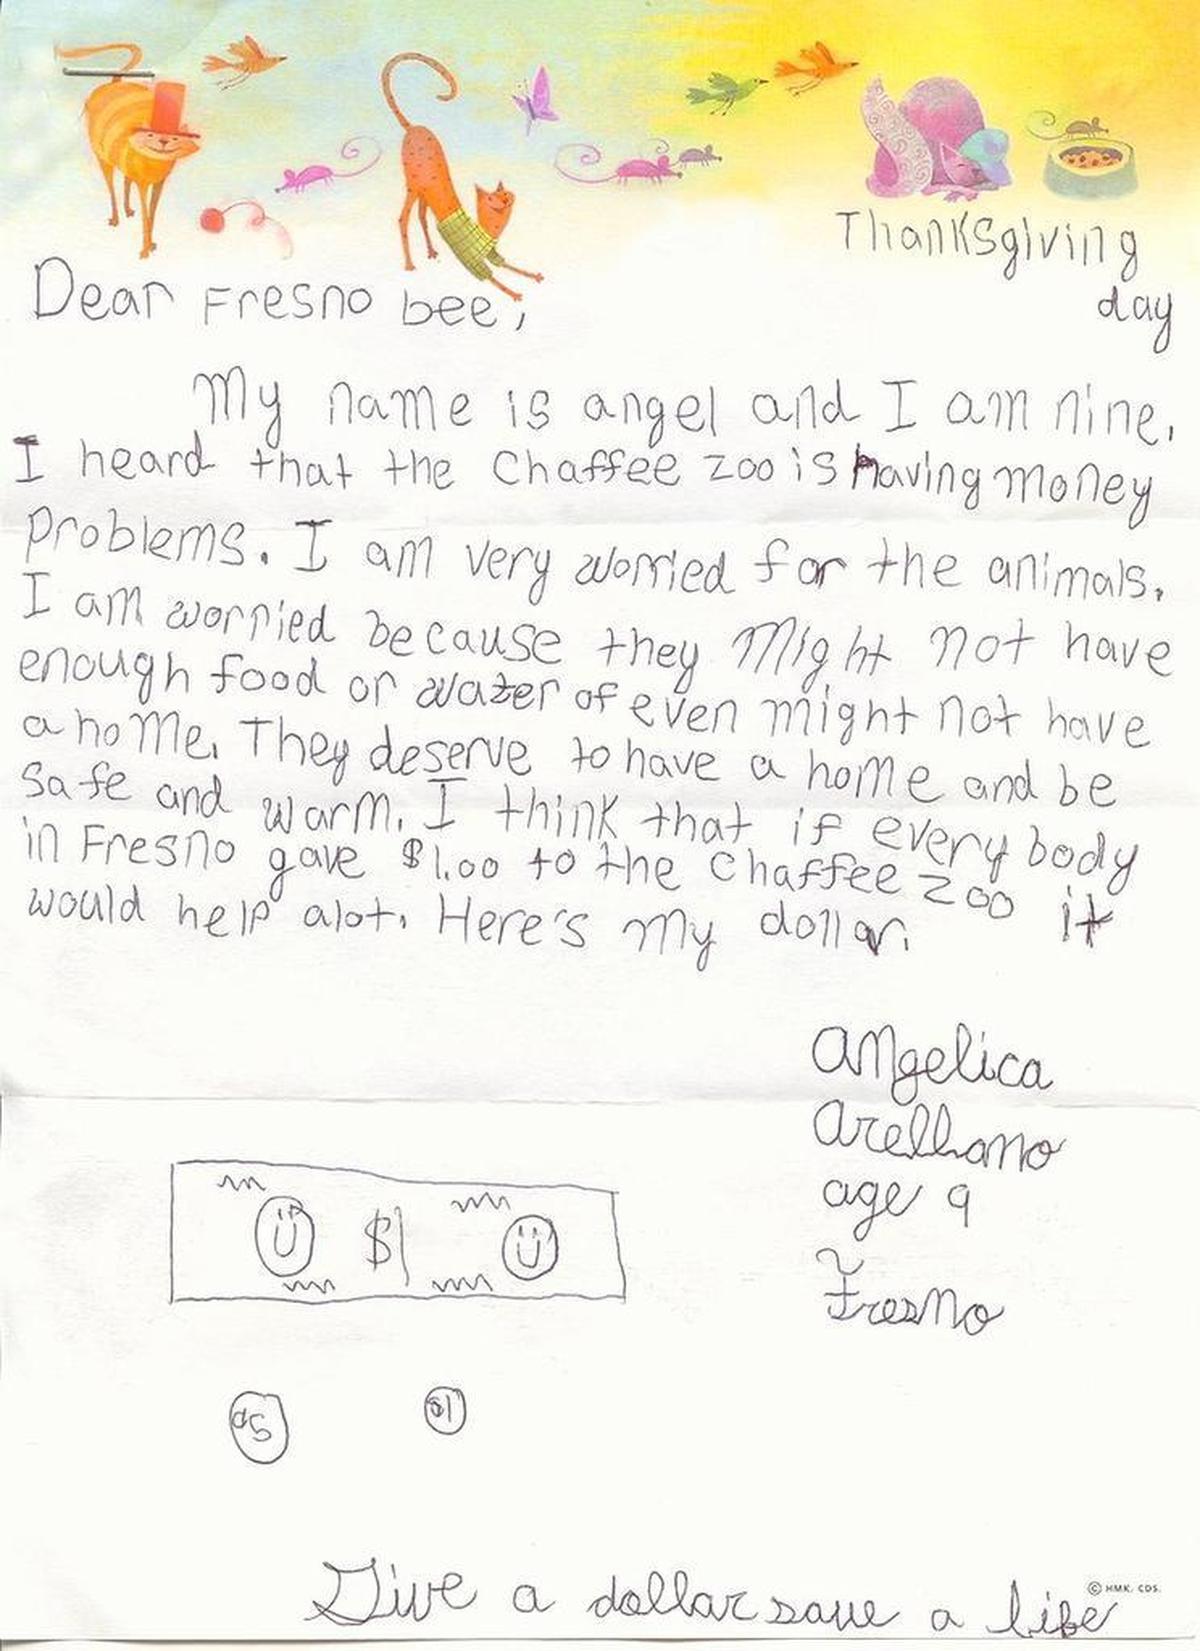 Thanksgiving
day
Dear Fresno bee,
My name is angel and I am nine.
I heard that the Chaffee zoo is having money
Problems. I am very worried for the animals.
I am worried because they Might not have
enough food or water of even might not have
a home. They deserve to have a home and be
safe and warm. I think that if every body
in Fresno gave $1.00 to the Chaffee zoo it
would help alot. Here's my dollar.
Angelica
Arellano
age 9
Fresno
$1
$1
Give a dollar save a life
© HMK. CDS.